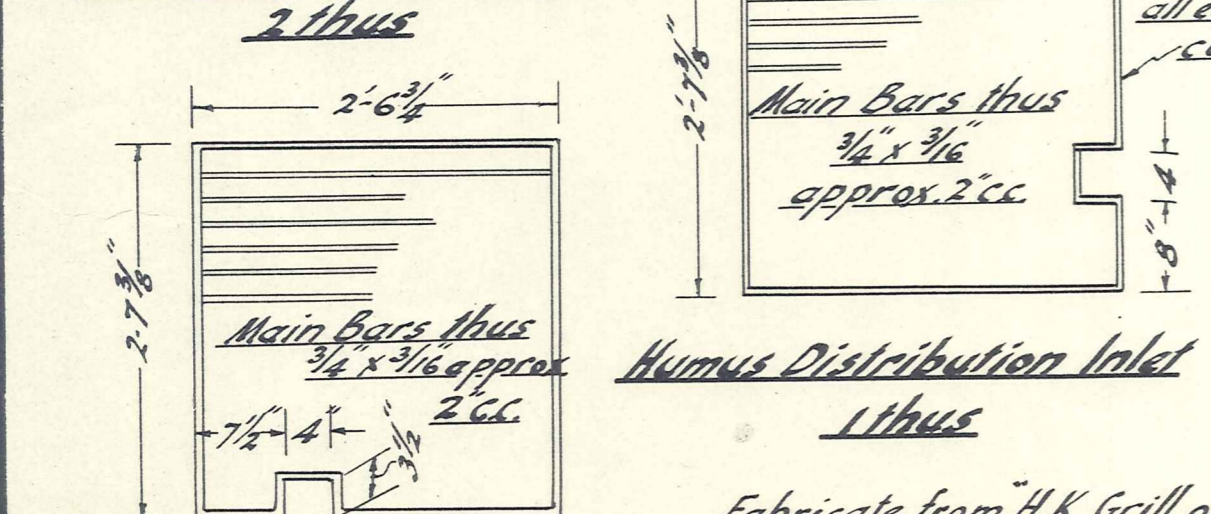 2 thus
2'-6 3/4"
2'-7 3/8"
Main Bars thus
3/4" x 3/16" approx
2" c.c.
7 1/2" 4" 3 1/2"
2'-7 3/8"
all
Main Bars thus
3/4" x 3/16"
approx. 2" c.c.
8" 4"
Humus Distribution Inlet
1 thus
Fabricate from "H.K. Grill